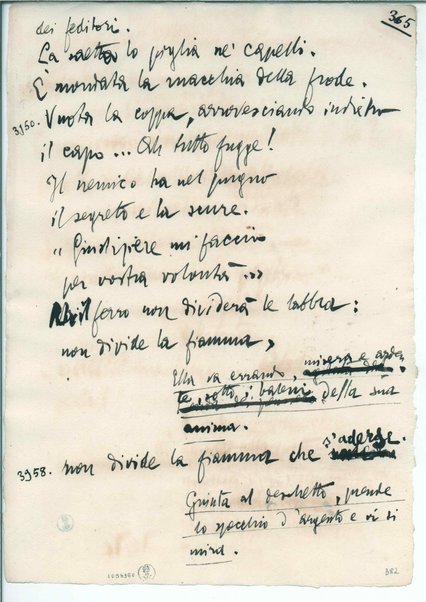 365
dei feditori.
La saetta lo piglia ne' capelli.
E' mondata la macchia della frode.
3950. Vuota la coppa, arrovesciando indietro
il capo ... Ah tutto fugge!
Il nemico ha nel pugno
il segreto e la scure.
"Giustiziere mi faccio
per vostra volontà ..."
Ah il ferro non dividerà le labbra:
non divide la fiamma,
Ella va errando, misera e arden-
te, sotto i baleni della sua
anima.
3958. non divide la fiamma che s'aderge.
Giunta al deschetto, prende
lo specchio d'argento e vi si
mira.
382